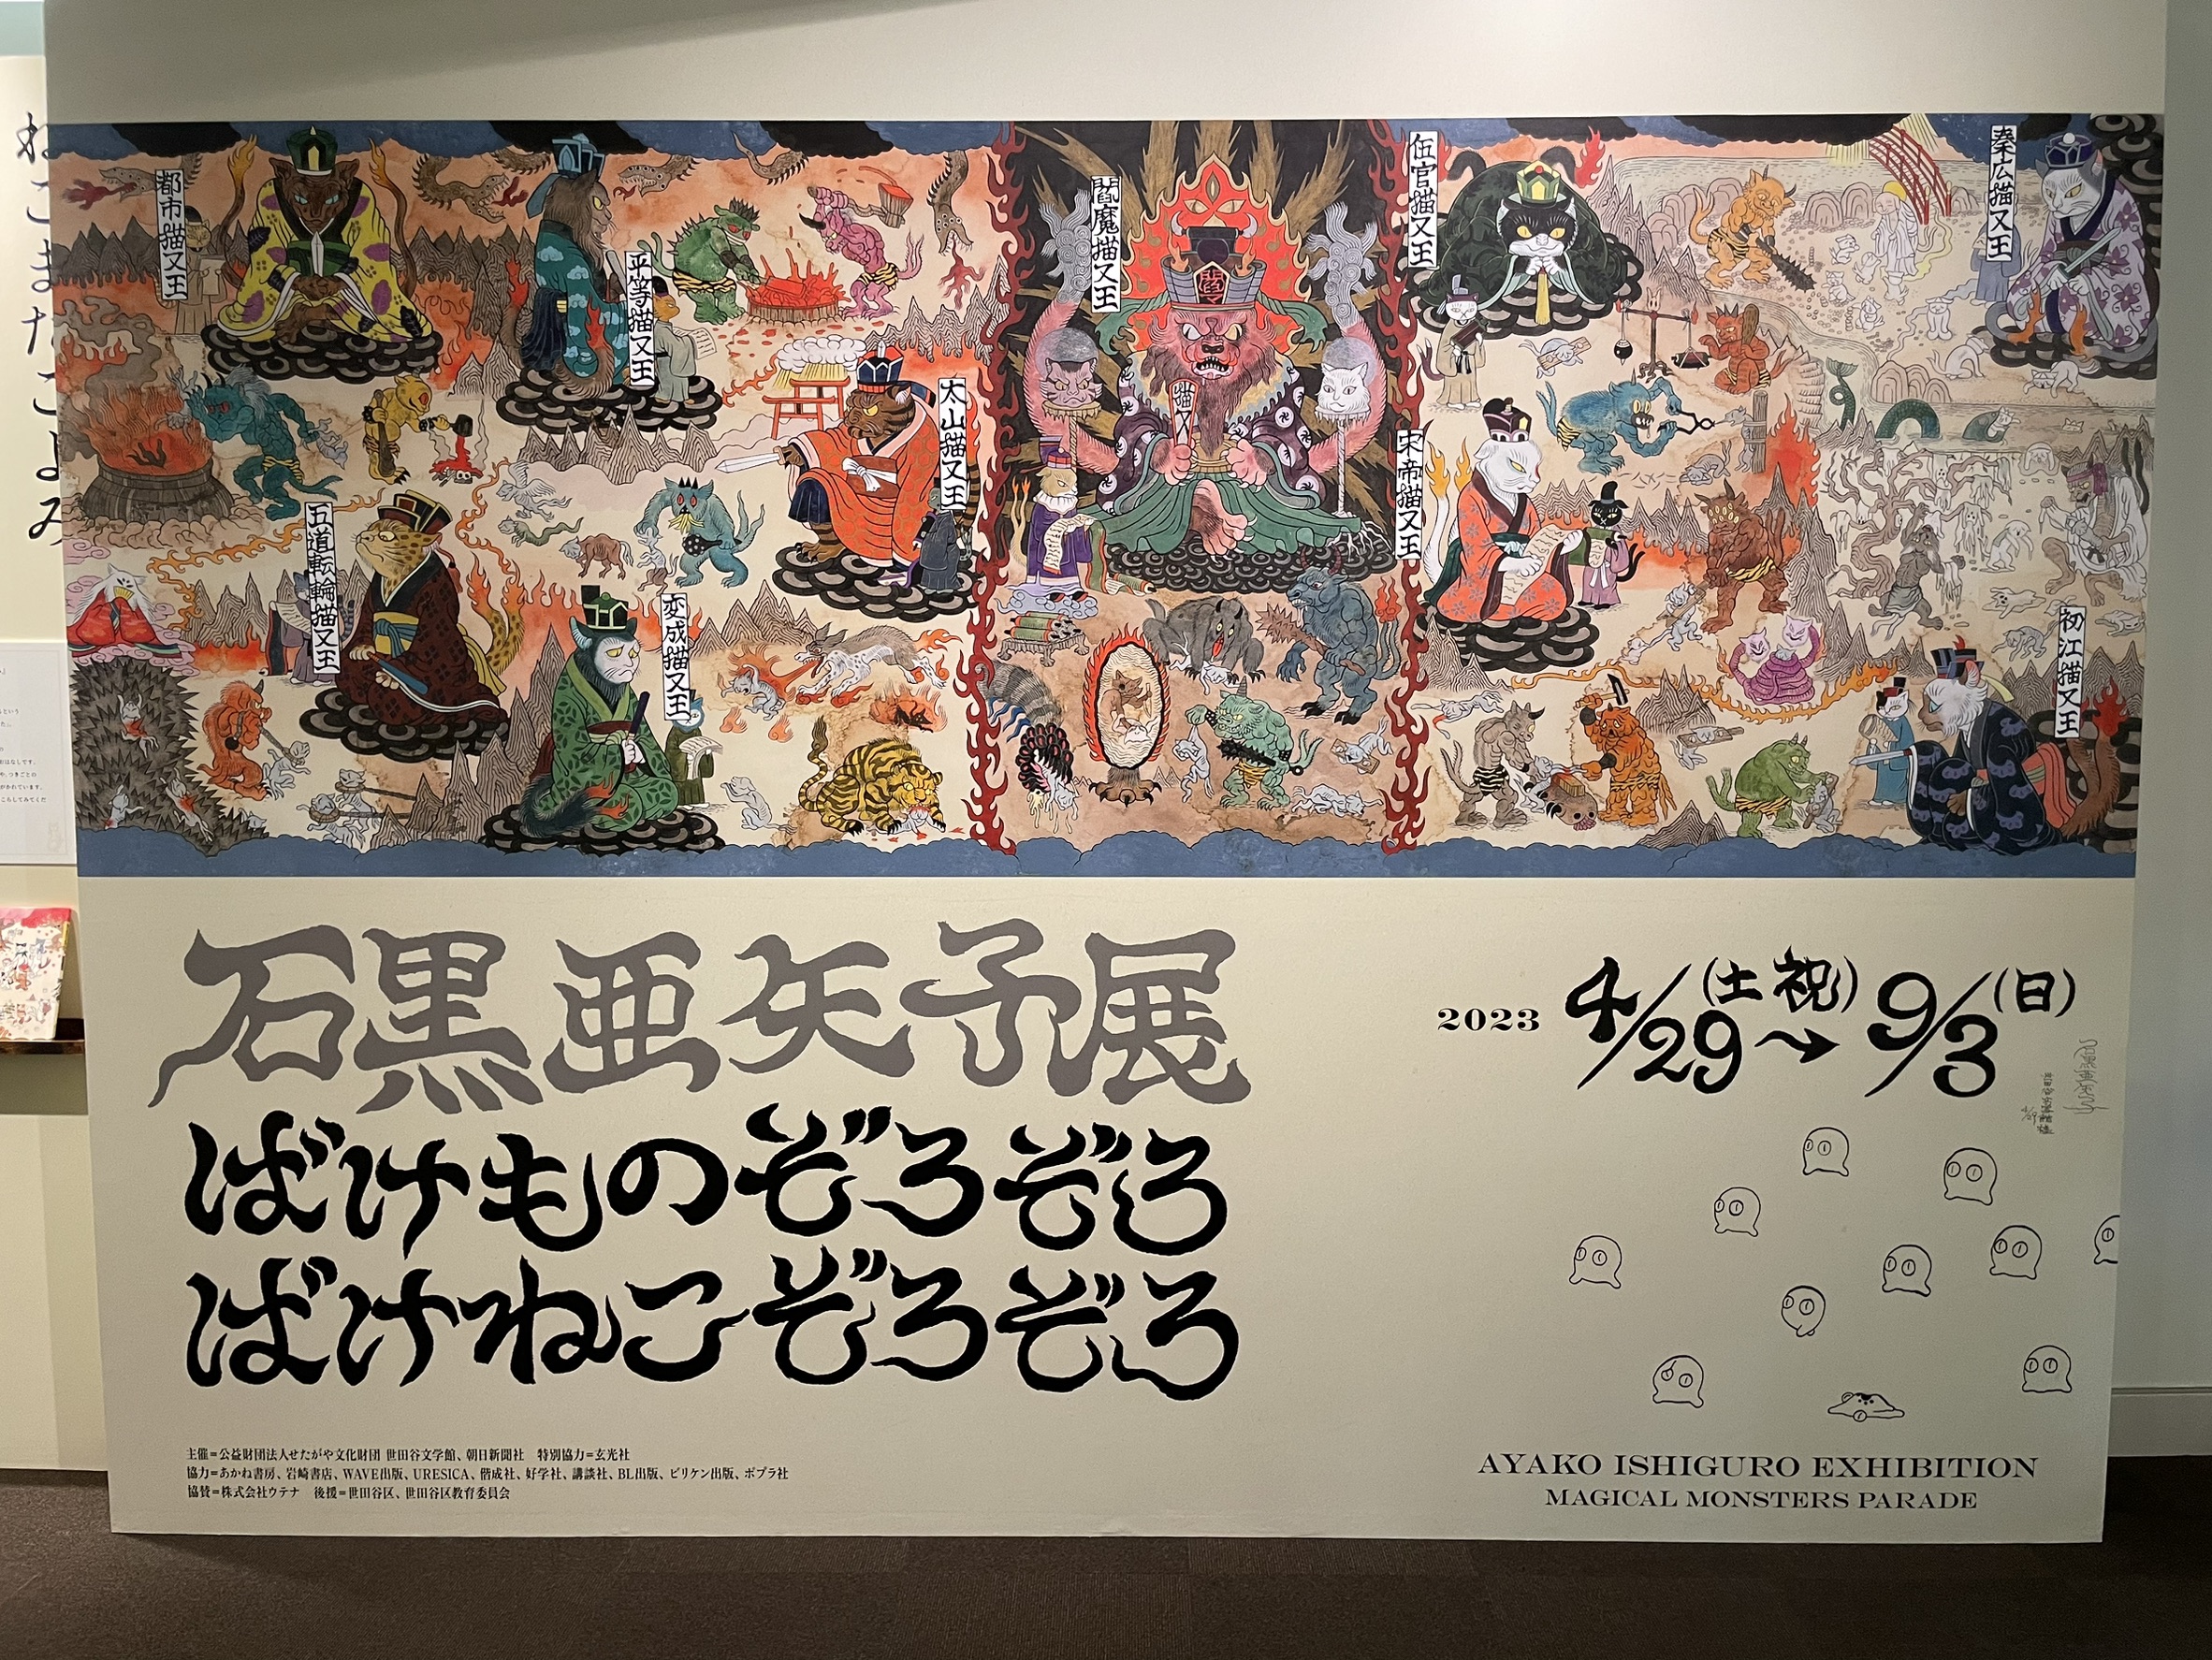 ねこまたごよみ
都市猫又王
平等猫又王
太山猫又王
五道転輪猫又王
変成猫又王
閻魔猫又王
閻
猫又
伍官猫又王
宋帝猫又王
秦広猫又王
初江猫又王
石黒亜矢子展
ばけものぞろぞろ
ばけねこぞろぞろ
2023 4/29(土祝)→9/3(日)
石黒亜矢子
世田谷文学館
4/29
主催=公益財団法人せたがや文化財団 世田谷文学館、朝日新聞社 特別協力=玄光社
協力=あかね書房、岩崎書店、WAVE出版、URESICA、偕成社、好学社、講談社、BL出版、ビリケン出版、ポプラ社
協賛=株式会社ウテナ 後援=世田谷区、世田谷区教育委員会
AYAKO ISHIGURO EXHIBITION
MAGICAL MONSTERS PARADE